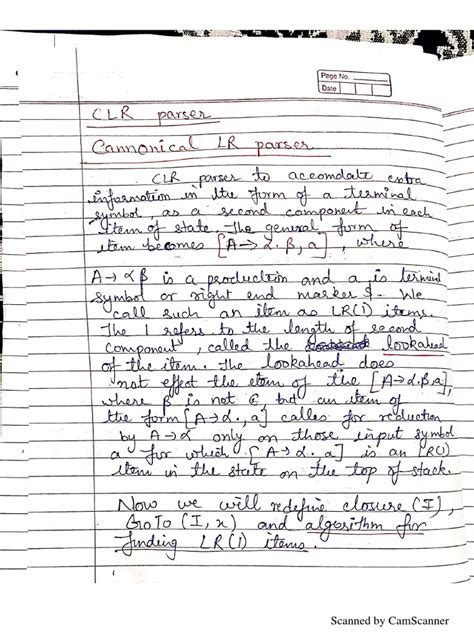 Page No.
Date
CLR parser
Cannonical LR parser
CLR parser to accomdate extra
information in the form of a terminal
symbol, as a second component in each
item of state. The general form of
item becomes [A→α.β,a], where
A→αβ is a production and a is terminal
symbol or right end marker $. We
call such an item as LR(1) items.
The 1 refers to the length of second
component, called the lookahead
of the item. The lookahead does
not effect the item of the [A→α.β,a],
where β is not ∈ but an item of
the form [A→α.,a] calls for reduction
by A→α only on those input symbol
a for which [A→α.,a] is an LR(1)
item in the state on the top of stack.
Now we will redefine closure (I),
GoTo (I,x) and algorithm for
finding LR(1) items.
Scanned by CamScanner